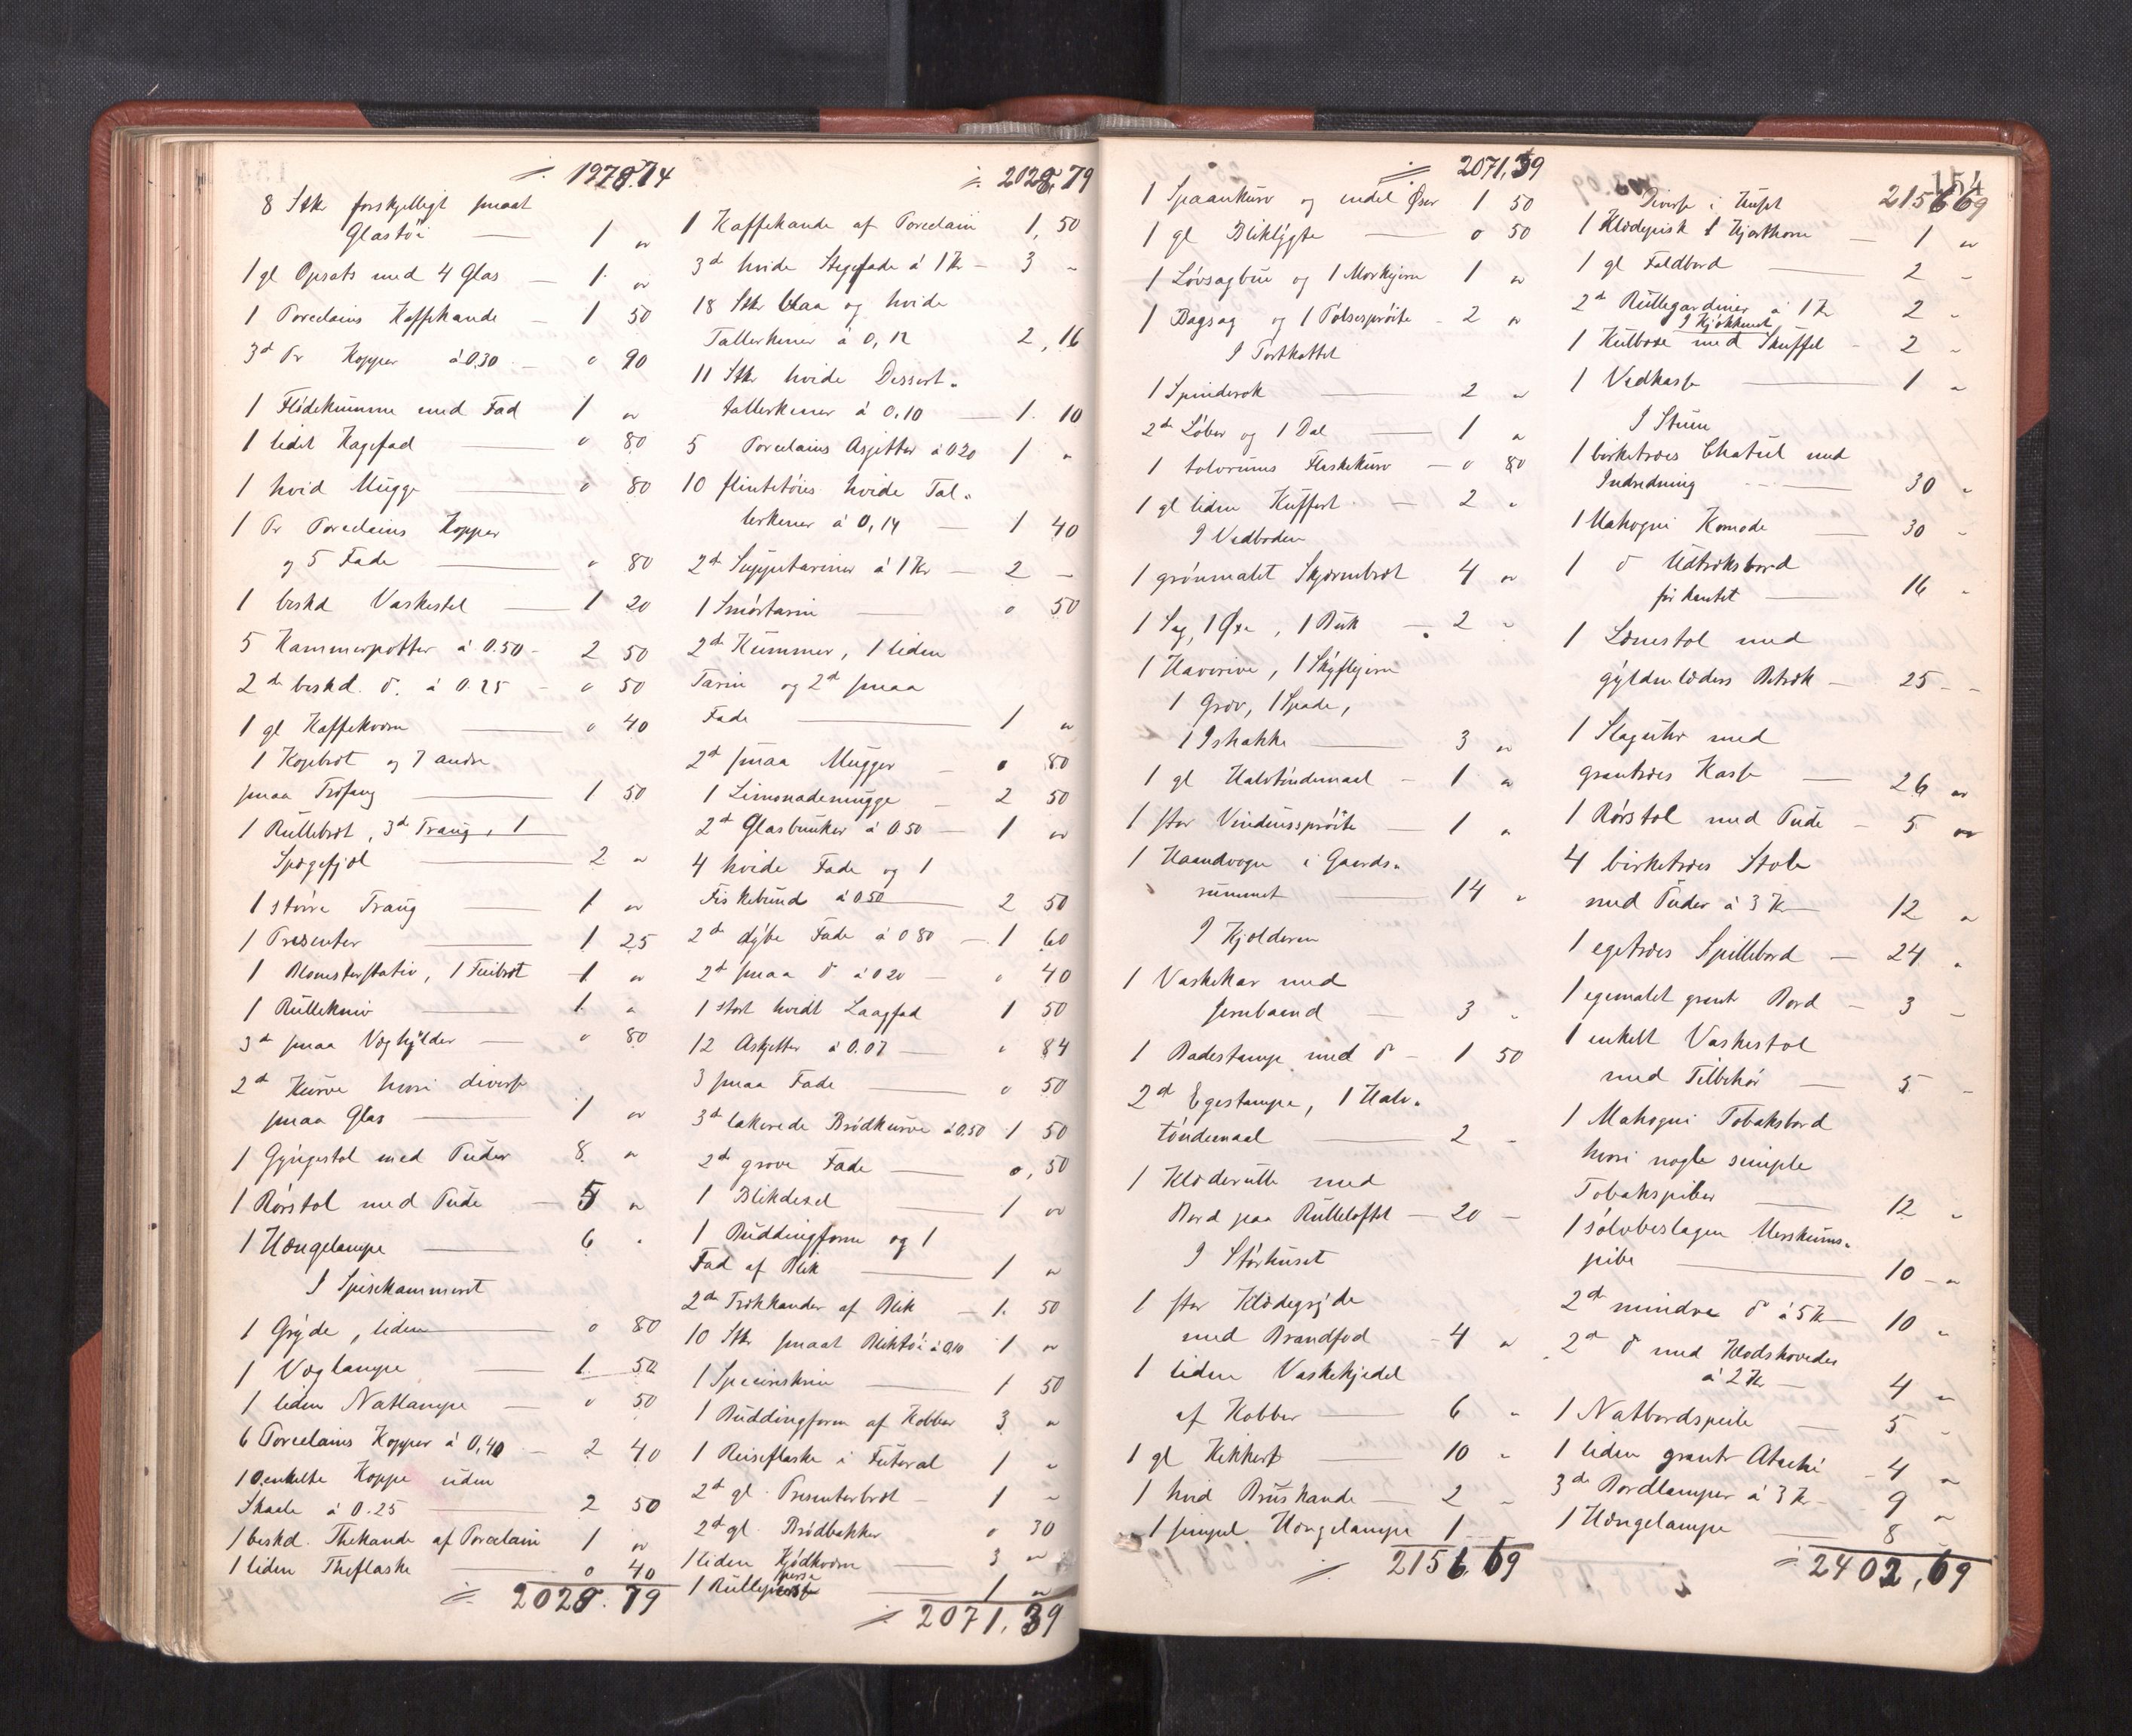 1978.74
8 Stkr forskjelligt smaat
Glastöi — 1 "
1 gl Opsats med 4 Glas — 1. "
1 Porcelains Kaffekande — 1 50
3de Pr Kopper á 0.30 — 0 90
1 Flödekumme med Fad 1 "
1 lidet Kagefad — 0 80
1 hvid Mugge — 0 80
1 Pr Porcelains Kopper
og 5 Fade — 0 80
1 beskd Vaskestel — 1 20
5 Kammerpotter á 0.50 - 2 50
2de beskd. do. á 0.25 - 0 50
1 gl Kaffekværn — 0 40
1 Kagebræt og 7 andre
smaa Træfang — 1 50
1 Rullebræt, 3de Traug, 1
Spegefjæl — 2 "
1 större Traug — 1 "
1 Presenter — 1 25
1 Blomsterstativ, 1 bræt 1 "
1 Rullekniv — 1. "
3de smaa Væghylder — 0 80
2de Kurve hvori diverse
smaa Glas — 1 "
1 Gyngestol med Puder 8. "
1 Rörstol med Pude — 5 "
1 Hængelampe — 6 "
I Spisekammeret
1 Gryde, liden — 0 80
1 Væglampe — 1. 50
1 liden Natlampe — 0 50
6 Porcelains Kopper á 0,40 — 2 40
10 enkelte Koppe uden
Skaale á 0.25 — 2 50
1 beskd. Thekande af Porcelain 1 "
1 liden Theflaske — 0 40
2028.79
2028,79
1 Kaffekande af Porcelain 1,50
3de hvide Stegefade á 1 Kr — 3 "
18 Stkr blaa og hvide
Tallerkener á 0,12 2,16
11 Stkr hvide Dessert-
tallerkener á 0,10 — 1. 10
5 Porcelains Asjetter á 0 20 1 "
10 flintetöies hvide Tal-
lerkener á 0,14 — 1 40
2de Suppeterriner á 1 Kr — 2 —
1 Smörterrin — 0 50
2de Kummer, 1 liden
Tarin og 2de smaa
Fade — 1 "
2de smaa Mugger — 0 80
1 Limonademugge — 2 50
2de Glasbunker á 0 50 — 1 "
4 hvide Fade og 1
Fiskebund á 0 50 — 2 50
2de dybe Fade á 0 80 — 1 60
2de smaa do á 0 20 — 0 40
1 stort hvidt Laagfad 1 50
12 Askjetter á 0.07 — " 84
3 smaa Fade — 0 50
3de lakerede Brödkurve á 0,50 1 50
2de grove Fade — 0,50
1 Blikdesel — 1 "
1 Puddingform og 1
Fad af Blik — 1 "
2de Trækkander af Blik — 1. 50
10 Stkr smaat Bliktöi á 0,10 1 "
1 Specieskrin — 1 50
1 Puddingform af Kobber 3 "
1 Reiseflaske i Futeral 1 "
2de gl. Presenterbræt — 1 "
2de gl. Brödbakker 0 30
1 liden Kjödkværn — 3 "
1 Rulle — 1 "
2071.39
2071,39
1 Spaankurv og endel Öser 1 50
1 gl Bliklygte — 0 50
1 Lövsagbue og 1 Morkjern 1 "
1 Bagsag og 1 Pölsespröite — 2 "
I Tørkattet
1 Spinderok — 2 "
2de Löber og 1 Dal — 1 "
1 tolvrums Flaskekurv — 0 80
1 gl liden Kuffert — 2 "
I Vedboden
1 grönmalet Skjærmbræt 4 "
1 Sag, 1 Öxe, 1 Buk — 2 "
1 Haverive, 1 Skyffeljern
1 Grev, 1 Spade,
1 Ishakke — 3 "
1 gl Halvtöndemaal — 1 "
1 stor Vinduesspröite — 1 "
1 Haandvogn i Gaards-
rummet — 14 "
I Kjelderen
1 Vaskekar med
Jernbaand — 3 "
1 Badestampe med do — 1 50
2de Egestampe, 1 Halv-
töndemaal — 2 "
1 Klæderulle med
Bord paa Rulleloftet — 20 —
I Störhuset
1 stor Klædegryde
med Brandfod — 4 "
1 liden Vaskekjedel
af Kobber — 6 "
1 gl Kikkert — 10 "
1 hvid Bruskande — 2 "
1 simpel Hængelampe 1
2156.69
154
Diverse i Huset 215669
1 Klædepisk 1 Hjorthorn — 1 "
1 gl Foldbord — 2 "
2de Rullegardiner á 1 Kr 2 "
I Kjökkenet
1 Kulboxe med Skuffel — 2 "
1 Vedkasse — 1 "
I Stuen
1 birketræes Chatul med
Indredning — 30 "
1 Mahogni Komode — 30 "
1 do Udtræksbord
firkantet — 16 "
1 Lænestol med
gyldenlæders Betræk — 25 "
1 Slaguhr med
grantræes Kasse — 26 "
1 Rörstol med Pude — 5 "
4 birketræes Stole
med Puder á 3 Kr — 12 "
1 egetræes Spillebord — 24 "
1 egemalet grant Bord — 3 —
1 enkelt Vaskestol
med Tilbehör — 5 —
1 Mahogni Tobaksbord
hvori nogle simple
Tobakspiber — 12 "
1 sölvbeslagen Merskums-
pibe — 10 "
2de mindre do á 5 Kr — 10 "
2de do med Klodshoveder
á 2 Kr — 4 "
1 Natbordspeile — 5 "
1 liden grant Ataché — 4 "
3de Bordlamper á 3 Kr — 9 "
1 Hængelampe — 8 "
2402,69